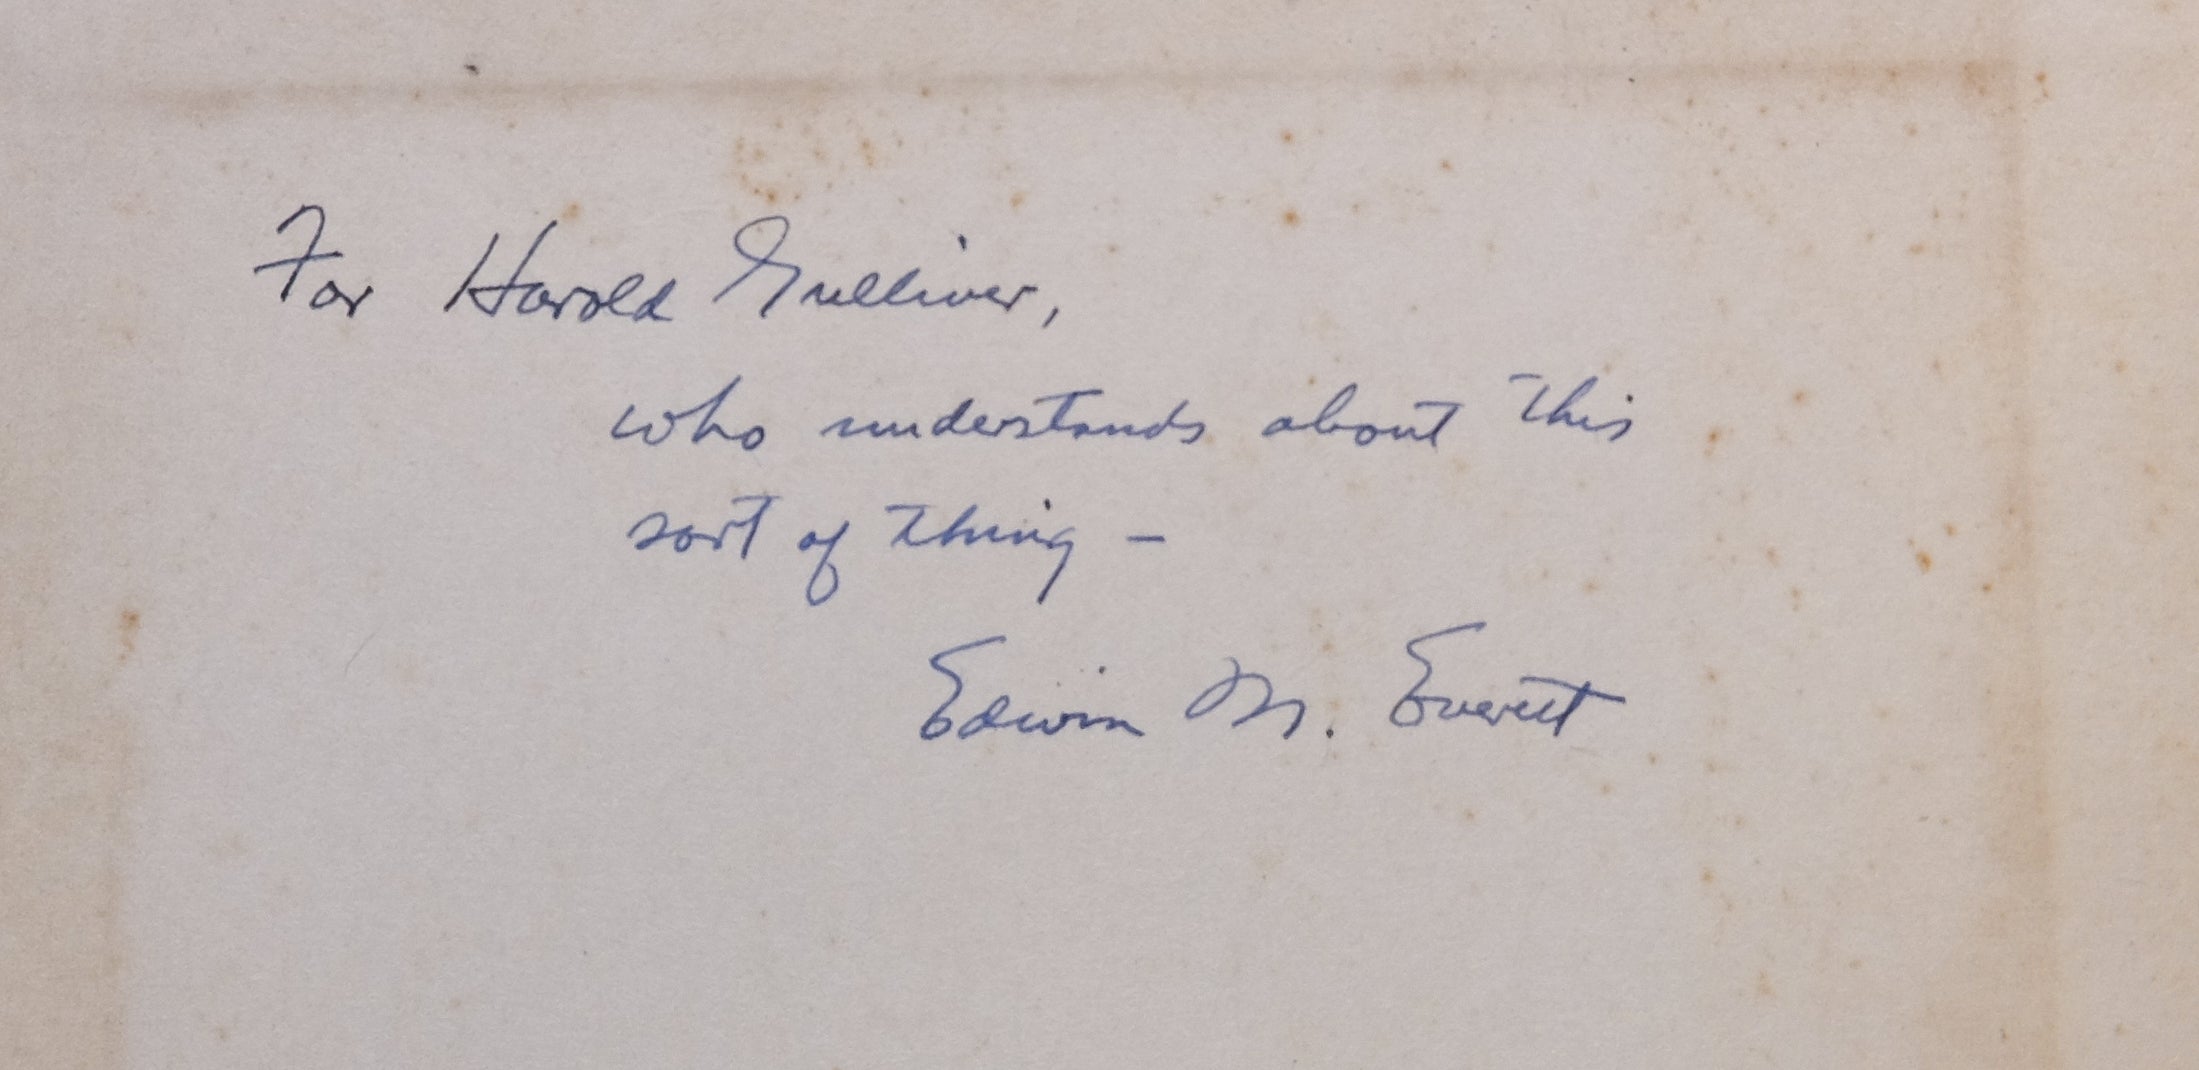 For Harold Gulliver,
who understands about this
sort of thing –
Edwin M. Everett